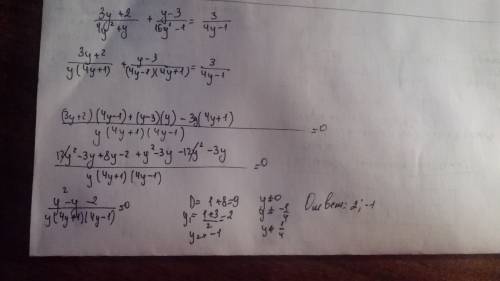 (3y+2)/(4y²+y) + (y-3)/(16y²-1) = 3/(4y-1)
(3y+2)/(y(4y+1)) + (y-3)/((4y-1)(4y+1)) = 3/(4y-1)
((3y+2)(4y-1)+(y-3)(y)-3y(4y+1))/(y(4y+1)(4y-1)) = 0
(12y²-3y+8y-2+y²-3y-12y²-3y)/(y(4y+1)(4y-1)) = 0
(y²-y-2)/(y(4y+1)(4y-1)) = 0 D=1+8=9 y≠0 Ответ: 2; -1
y₁=(1+3)/2=2 y≠-1/4
y₂=-1 y≠1/4